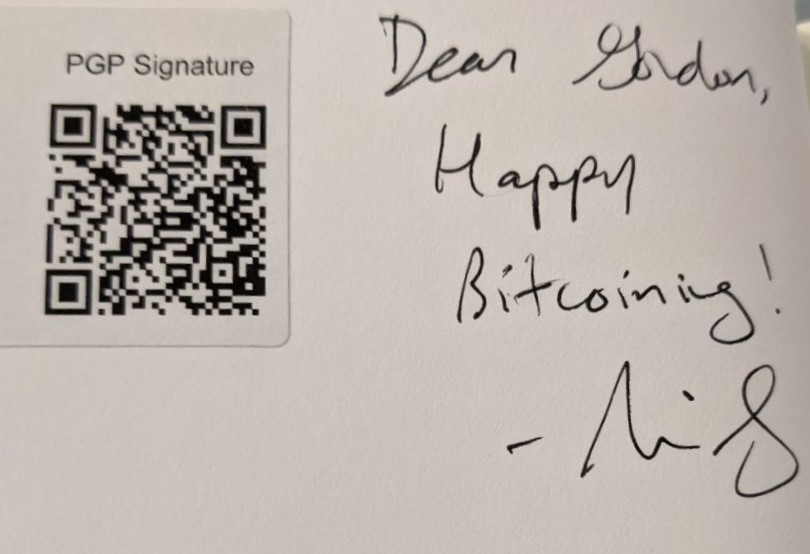 PGP Signature
Dear Gordon,
Happy
Bitcoining!